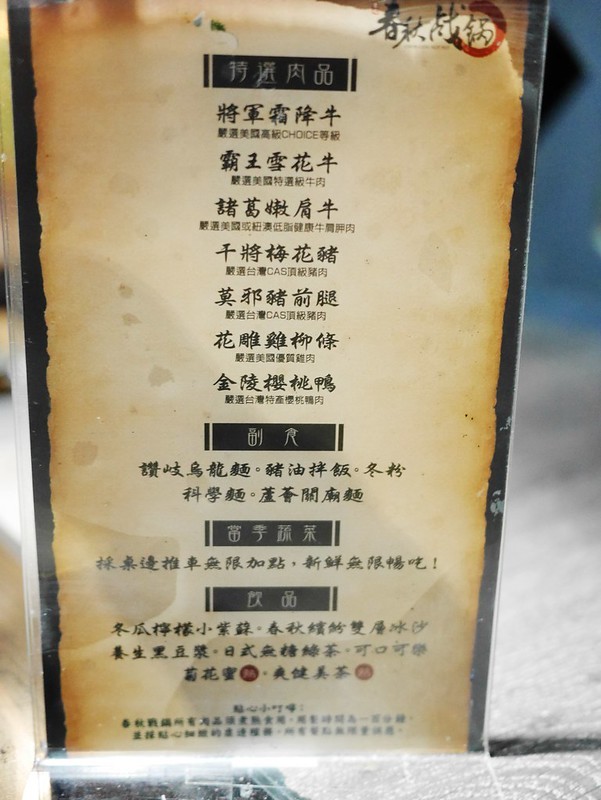 春秋戲鍋
特選肉品
將軍霜降牛
嚴選美國高級CHOICE等級
霸王雪花牛
嚴選美國特選級牛肉
諸葛嫩肩牛
嚴選美國或紐澳低脂健康牛肩胛肉
干將梅花豬
嚴選台灣CAS頂級豬肉
莫邪豬前腿
嚴選台灣CAS頂級豬肉
花雕雞柳條
嚴選美國優質雞肉
金陵櫻桃鴨
嚴選台灣特產櫻桃鴨肉
副食
讚岐烏龍麵。豬油拌飯。冬粉
科學麵。蘆薈關廟麵
當季蔬菜
採桌邊推車無限加點，新鮮無限暢吃！
飲品
冬瓜檸檬小紫蘇。春秋繽紛雙層冰沙
養生黑豆漿。日式無糖綠茶。可口可樂
菊花蜜 熱。爽健美茶 熱
貼心小叮嚀：
春秋戲鍋所有肉品須煮熟食用。用餐時間為一百分鐘。
並採貼心細緻的桌邊服務。所有餐點無限量供應。